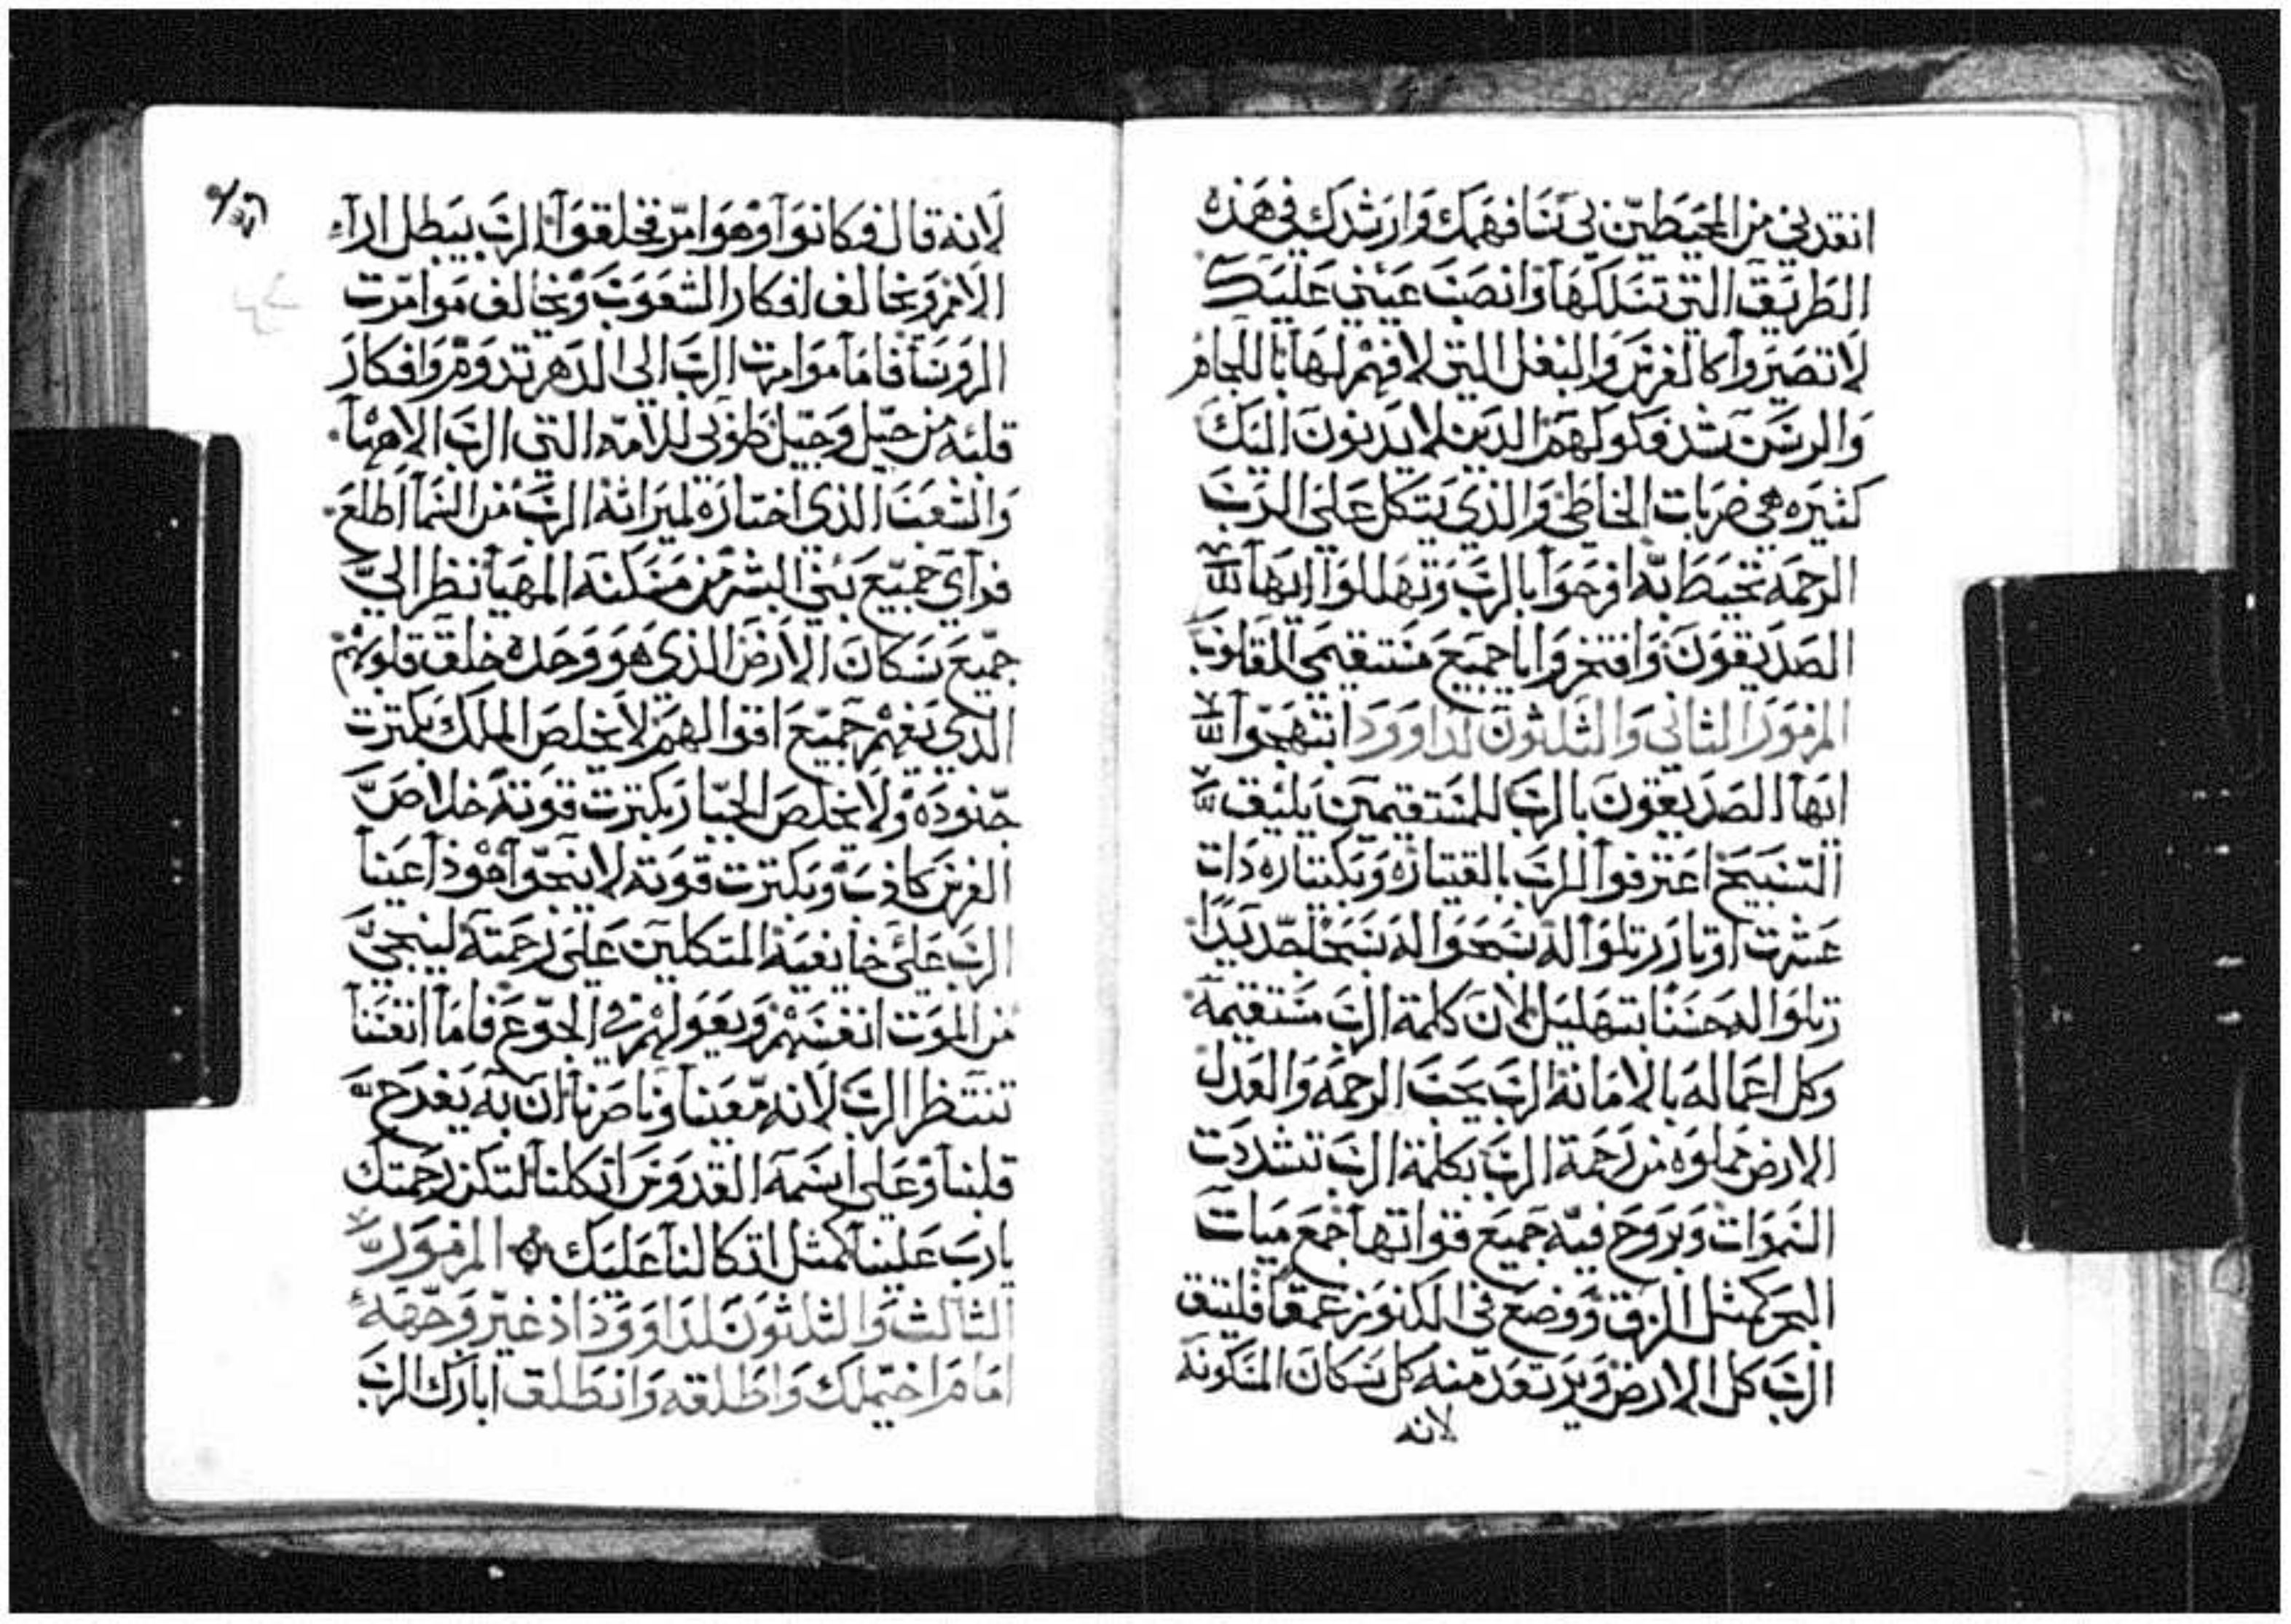 انقدني من المحيطين بي ننا فهمك وارشدك في هذه
الطريق التي تسلكها وانصب عيني عليك
لا تصيروا كالفرس والبغل التي لا فهم لها باللجام
والرسن شد فكوكهم الدين لا يدنون اليك
كثيره هي ضربات الخاطي والذي يتكل على الرب
الرحمه تحيط به افرحوا بالرب وتهللوا ايها
الصديقون وافتخروا يا جميع مستقيمي القلوب
المزمور الثاني والثلثون لداوود ابتهجوا
ايها الصديقون بالرب للمستقيمين يليق
التسبيح اعترفوا للرب بالقيتاره وبكيتاره دات
عشرت اوتار رتلوا له سبحوا له تسبحا جديدا
رتلوا له حسنا بتهليل لان كلمة الرب مستقيمه
وكل اعماله بالامانة الرب يحب الرحمه والعدل
الارض مملوه من رحمة الرب بكلمة الرب تشددت
السموات وبروح فيه جميع قواتها جمع ميات
البحر كمثل الزق ووضع في الكنوز عمقا فليتق
الرب كل الارض ويرتعد منه كل سكان المسكونه
لانه
لانه قال فكانوا وهو امر فخلقوا الرب يبطل ارآء
الامم ويخالف افكار الشعوب ويخالف موامرت
الروسا فاما موامرت الرب الى الدهر تدوم وافكار
قلبه من جيل وجيل طوبى للامه التي الرب الاهها
والشعب الذي اختاره لميراثه الرب من السما اطلع
فرآي جميع بني البشر من مسكنه المهيا نظر الي
جميع سكان الارض الذي هو وحده خلق قلوبهم
الذي يفهم جميع اقوالهم لا يخلص الملك بكترت
جنوده ولا يخلص الجبار بكترت قوته خلاص
الفرس كاذب وبكترت قوته لا ينجوا هوذا عينا
الرب على خايفيه المتكلين على رحمته لينجي
من الموت انفسهم ويعولهم في الجوع فاما انفسنا
تنتظر الرب لانه معيننا وناصرنا ان به يفرح
قلبنا وعلى اسمه القدوس اتكلنا لتكن رحمتك
يارب علينا كمثل اتكالنا عليك المزمور
الثالث والثلثون لداوود اذ غير وجهه
امام اخيملك واطلقه وانطلق ابارك الرب